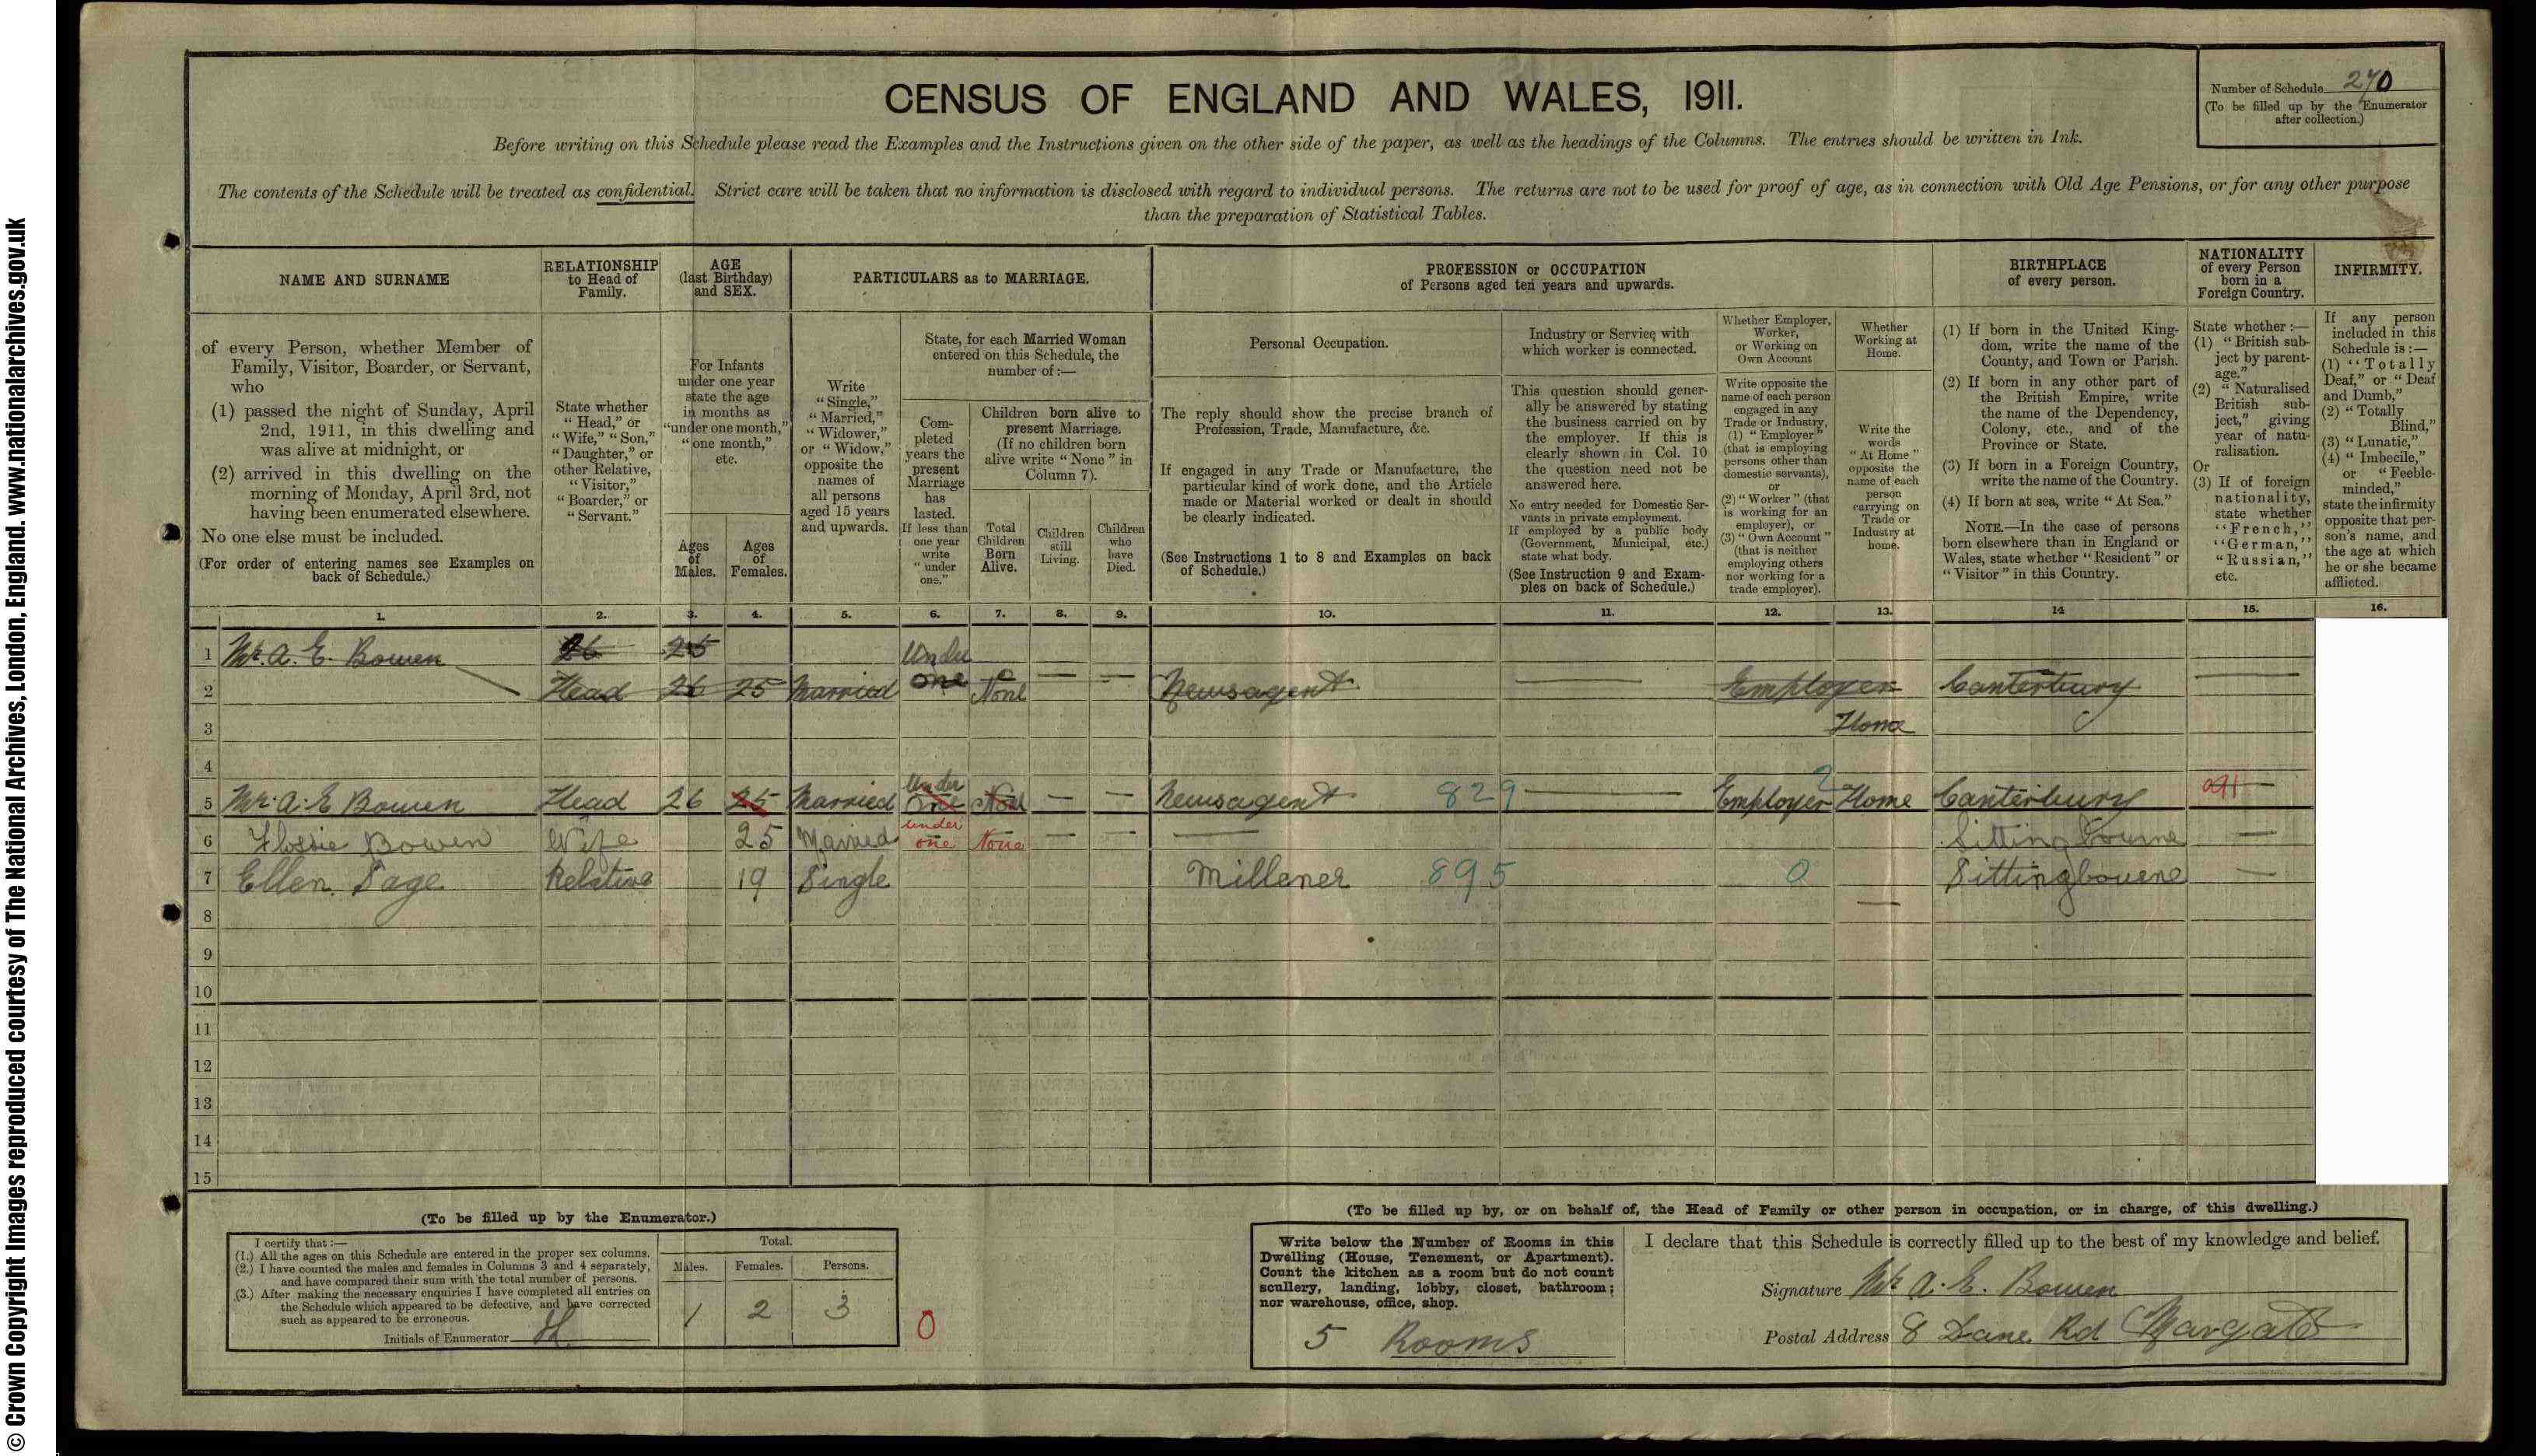 CENSUS OF ENGLAND AND WALES, 1911.
Number of Schedule 270
(To be filled up by the Enumerator
after collection.)
Before writing on this Schedule please read the Examples and the Instructions given on the other side of the paper, as well as the headings of the Columns. The entries should be written in Ink.
The contents of the Schedule will be treated as confidential. Strict care will be taken that no information is disclosed with regard to individual persons. The returns are not to be used for proof of age, as in connection with Old Age Pensions, or for any other purpose
than the preparation of Statistical Tables.
NAME AND SURNAME
of every Person, whether Member of
Family, Visitor, Boarder, or Servant,
who
(1) passed the night of Sunday, April
2nd, 1911, in this dwelling and
was alive at midnight, or
(2) arrived in this dwelling on the
morning of Monday, April 3rd, not
having been enumerated elsewhere.
No one else must be included.
(For order of entering names see Examples on
back of Schedule.)
RELATIONSHIP
to Head of
Family.
State whether
"Head," or
"Wife," "Son,"
"Daughter," or
other Relative,
"Visitor,"
"Boarder," or
"Servant."
AGE
(last Birthday)
and SEX.
For Infants
under one year
state the age
in months as
"under one month,"
"one month,"
etc.
Ages
of
Males.
Ages
of
Females.
PARTICULARS as to MARRIAGE.
Write
"Single,"
"Married,"
"Widower,"
or "Widow,"
opposite the
names of
all persons
aged 15 years
and upwards.
State, for each Married Woman
entered on this Schedule, the
number of:—
Com-
pleted
years the
present
Marriage
has
lasted.
If less than
one year
write
"under
one."
Children born alive to
present Marriage.
(If no children born
alive write "None" in
Column 7).
Total
Children
Born
Alive.
Children
still
Living.
Children
who
have
Died.
PROFESSION or OCCUPATION
of Persons aged ten years and upwards.
Personal Occupation.
The reply should show the precise branch of
Profession, Trade, Manufacture, &c.
If engaged in any Trade or Manufacture, the
particular kind of work done, and the Article
made or Material worked or dealt in should
be clearly indicated.
(See Instructions 1 to 8 and Examples on back
of Schedule.)
Industry or Service with
which worker is connected.
This question should gener-
ally be answered by stating
the business carried on by
the employer. If this is
clearly shown in Col. 10
the question need not be
answered here.
No entry needed for Domestic Ser-
vants in private employment.
If employed by a public body
(Government, Municipal, etc.)
state what body.
(See Instruction 9 and Exam-
ples on back of Schedule.)
Whether Employer,
Worker,
or Working on
Own Account
Write opposite the
name of each person
engaged in any
Trade or Industry,
(1) "Employer"
(that is employing
persons other than
domestic servants),
or
(2) "Worker" (that
is working for an
employer), or
(3) "Own Account"
(that is neither
employing others
nor working for a
trade employer).
Whether
Working at
Home.
Write the
words
"At Home"
opposite the
name of each
person
carrying on
Trade or
Industry at
home.
BIRTHPLACE
of every person.
(1) If born in the United King-
dom, write the name of the
County, and Town or Parish.
(2) If born in any other part of
the British Empire, write
the name of the Dependency,
Colony, etc., and of the
Province or State.
(3) If born in a Foreign Country,
write the name of the Country.
(4) If born at sea, write "At Sea."
NOTE.—In the case of persons
born elsewhere than in England or
Wales, state whether "Resident" or
"Visitor" in this Country.
NATIONALITY
of every Person
born in a
Foreign Country.
State whether:—
(1) "British sub-
ject by parent-
age."
(2) "Naturalised
British sub-
ject," giving
year of natu-
ralisation.
Or
(3) If of foreign
nationality,
state whether
"French,"
"German,"
"Russian,"
etc.
INFIRMITY.
If any person
included in this
Schedule is:—
(1) "Totally
Deaf," or "Deaf
and Dumb,"
(2) "Totally
Blind,"
(3) "Lunatic,"
(4) "Imbecile,"
or "Feeble-
minded,"
state the infirmity
opposite that per-
son's name, and
the age at which
he or she became
afflicted.
1. 2. 3. 4. 5. 6. 7. 8. 9. 10. 11. 12. 13. 14 15. 16.
1 Mr. A. E. Bowen 26 25 Under
2 Head 26 25 Married one None — — Newsagent — Employer Canterbury —
3 Home
4
5 Mr. A. E Bowen Head 26 25 Married Under One None — — Newsagent 829 — Employer 2 Home Canterbury 091
6 Flossie Bowen Wife 25 Married under one None — — — Sittingbourne —
7 Ellen Page Relative 19 Single Millener 895 0 — Sittingbourne —
8
9
10
11
12
13
14
15
(To be filled up by the Enumerator.)
I certify that:—
(1.) All the ages on this Schedule are entered in the proper sex columns.
(2.) I have counted the males and females in Columns 3 and 4 separately,
and have compared their sum with the total number of persons.
(3.) After making the necessary enquiries I have completed all entries on
the Schedule which appeared to be defective, and have corrected
such as appeared to be erroneous.
Initials of Enumerator
Total.
Males. Females. Persons.
1 2 3
0
(To be filled up by, or on behalf of, the Head of Family or other person in occupation, or in charge, of this dwelling.)
Write below the Number of Rooms in this
Dwelling (House, Tenement, or Apartment).
Count the kitchen as a room but do not count
scullery, landing, lobby, closet, bathroom;
nor warehouse, office, shop.
5 Rooms
I declare that this Schedule is correctly filled up to the best of my knowledge and belief.
Signature Mr A. E. Bowen
Postal Address 8 Dane Rd Margate
© Crown Copyright Images reproduced courtesy of The National Archives, London, England. www.nationalarchives.gov.uk